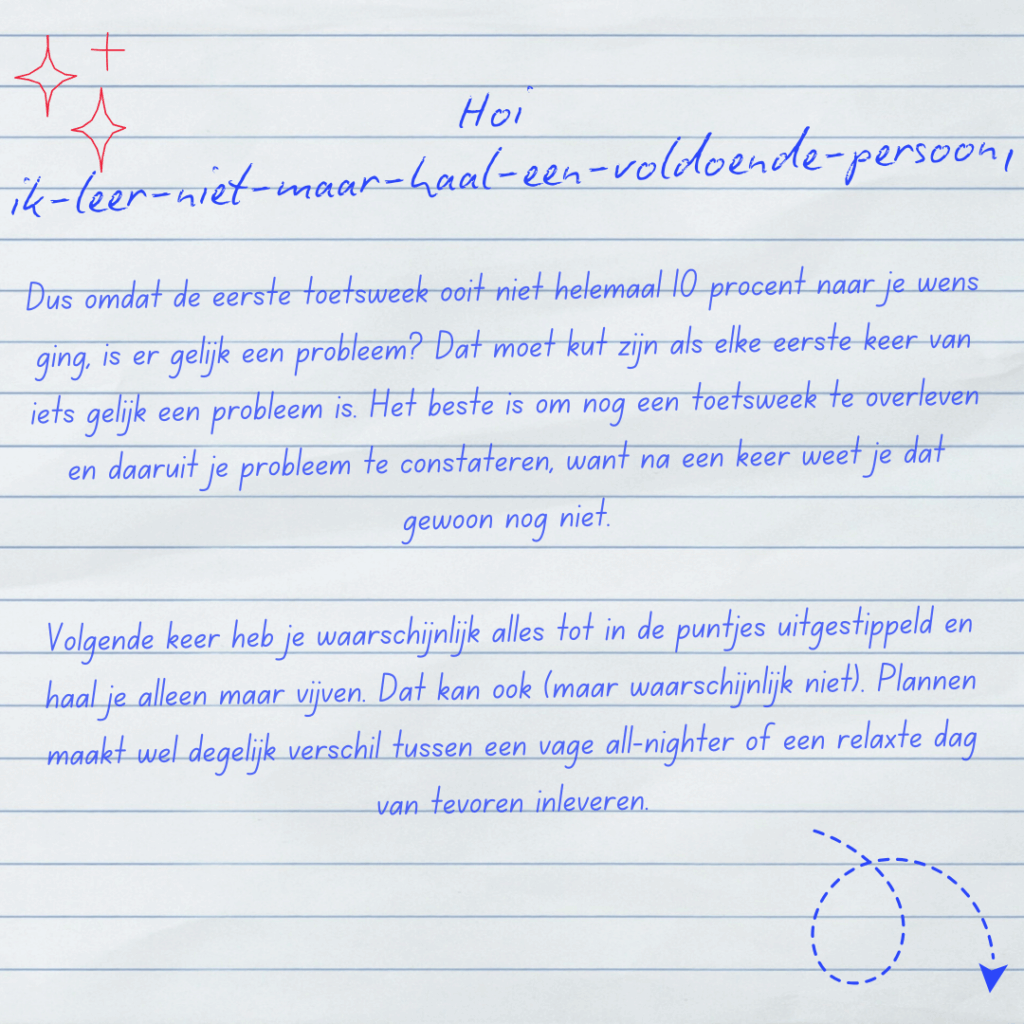 Hoi
ik-leer-niet-maar-haal-een-voldoende-persoon,
Dus omdat de eerste toetsweek ooit niet helemaal 10 procent naar je wens
ging, is er gelijk een probleem? Dat moet kut zijn als elke eerste keer van
iets gelijk een probleem is. Het beste is om nog een toetsweek te overleven
en daaruit je probleem te constateren, want na een keer weet je dat
gewoon nog niet.
Volgende keer heb je waarschijnlijk alles tot in de puntjes uitgestippeld en
haal je alleen maar vijven. Dat kan ook (maar waarschijnlijk niet). Plannen
maakt wel degelijk verschil tussen een vage all-nighter of een relaxte dag
van tevoren inleveren.